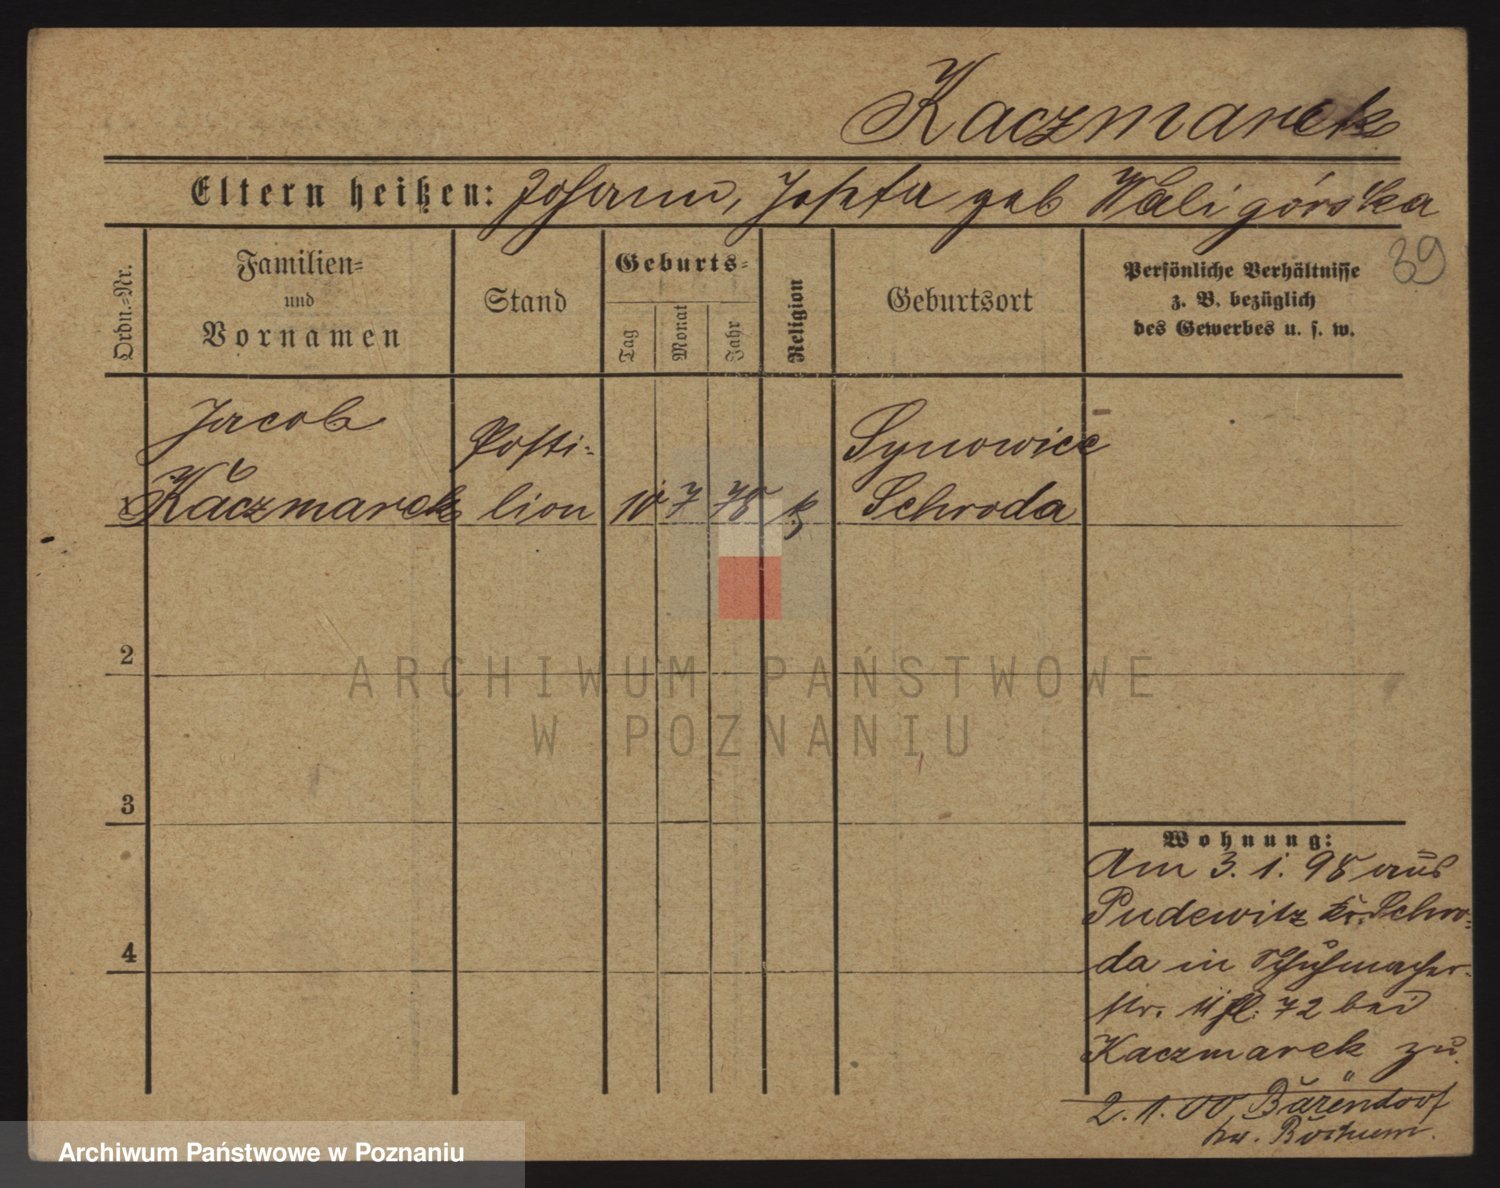 Kaczmarek
Eltern heißen: Johann, Josefa geb Waligórska
39
Ordn.-Nr.
Familien-
und
Vornamen
Stand
Geburts-
Tag
Monat
Jahr
Religion
Geburtsort
Persönliche Verhältnisse
z. B. bezüglich
des Gewerbes u. s. w.
Jacob
Kaczmarek
Posti-
lion
10 7 78 k
Synowiec
Schroda
2
3
4
Wohnung:
Am 3. 1. 98 aus
Pudewitz Kr. Schro-
da in Schuhmacher-
str. 11 72 bei
Kaczmarek zu.
2. 1. 00, Bärendorf
Kr. Bochum.
ARCHIWUM PAŃSTWOWE
W POZNANIU
Archiwum Państwowe w Poznaniu